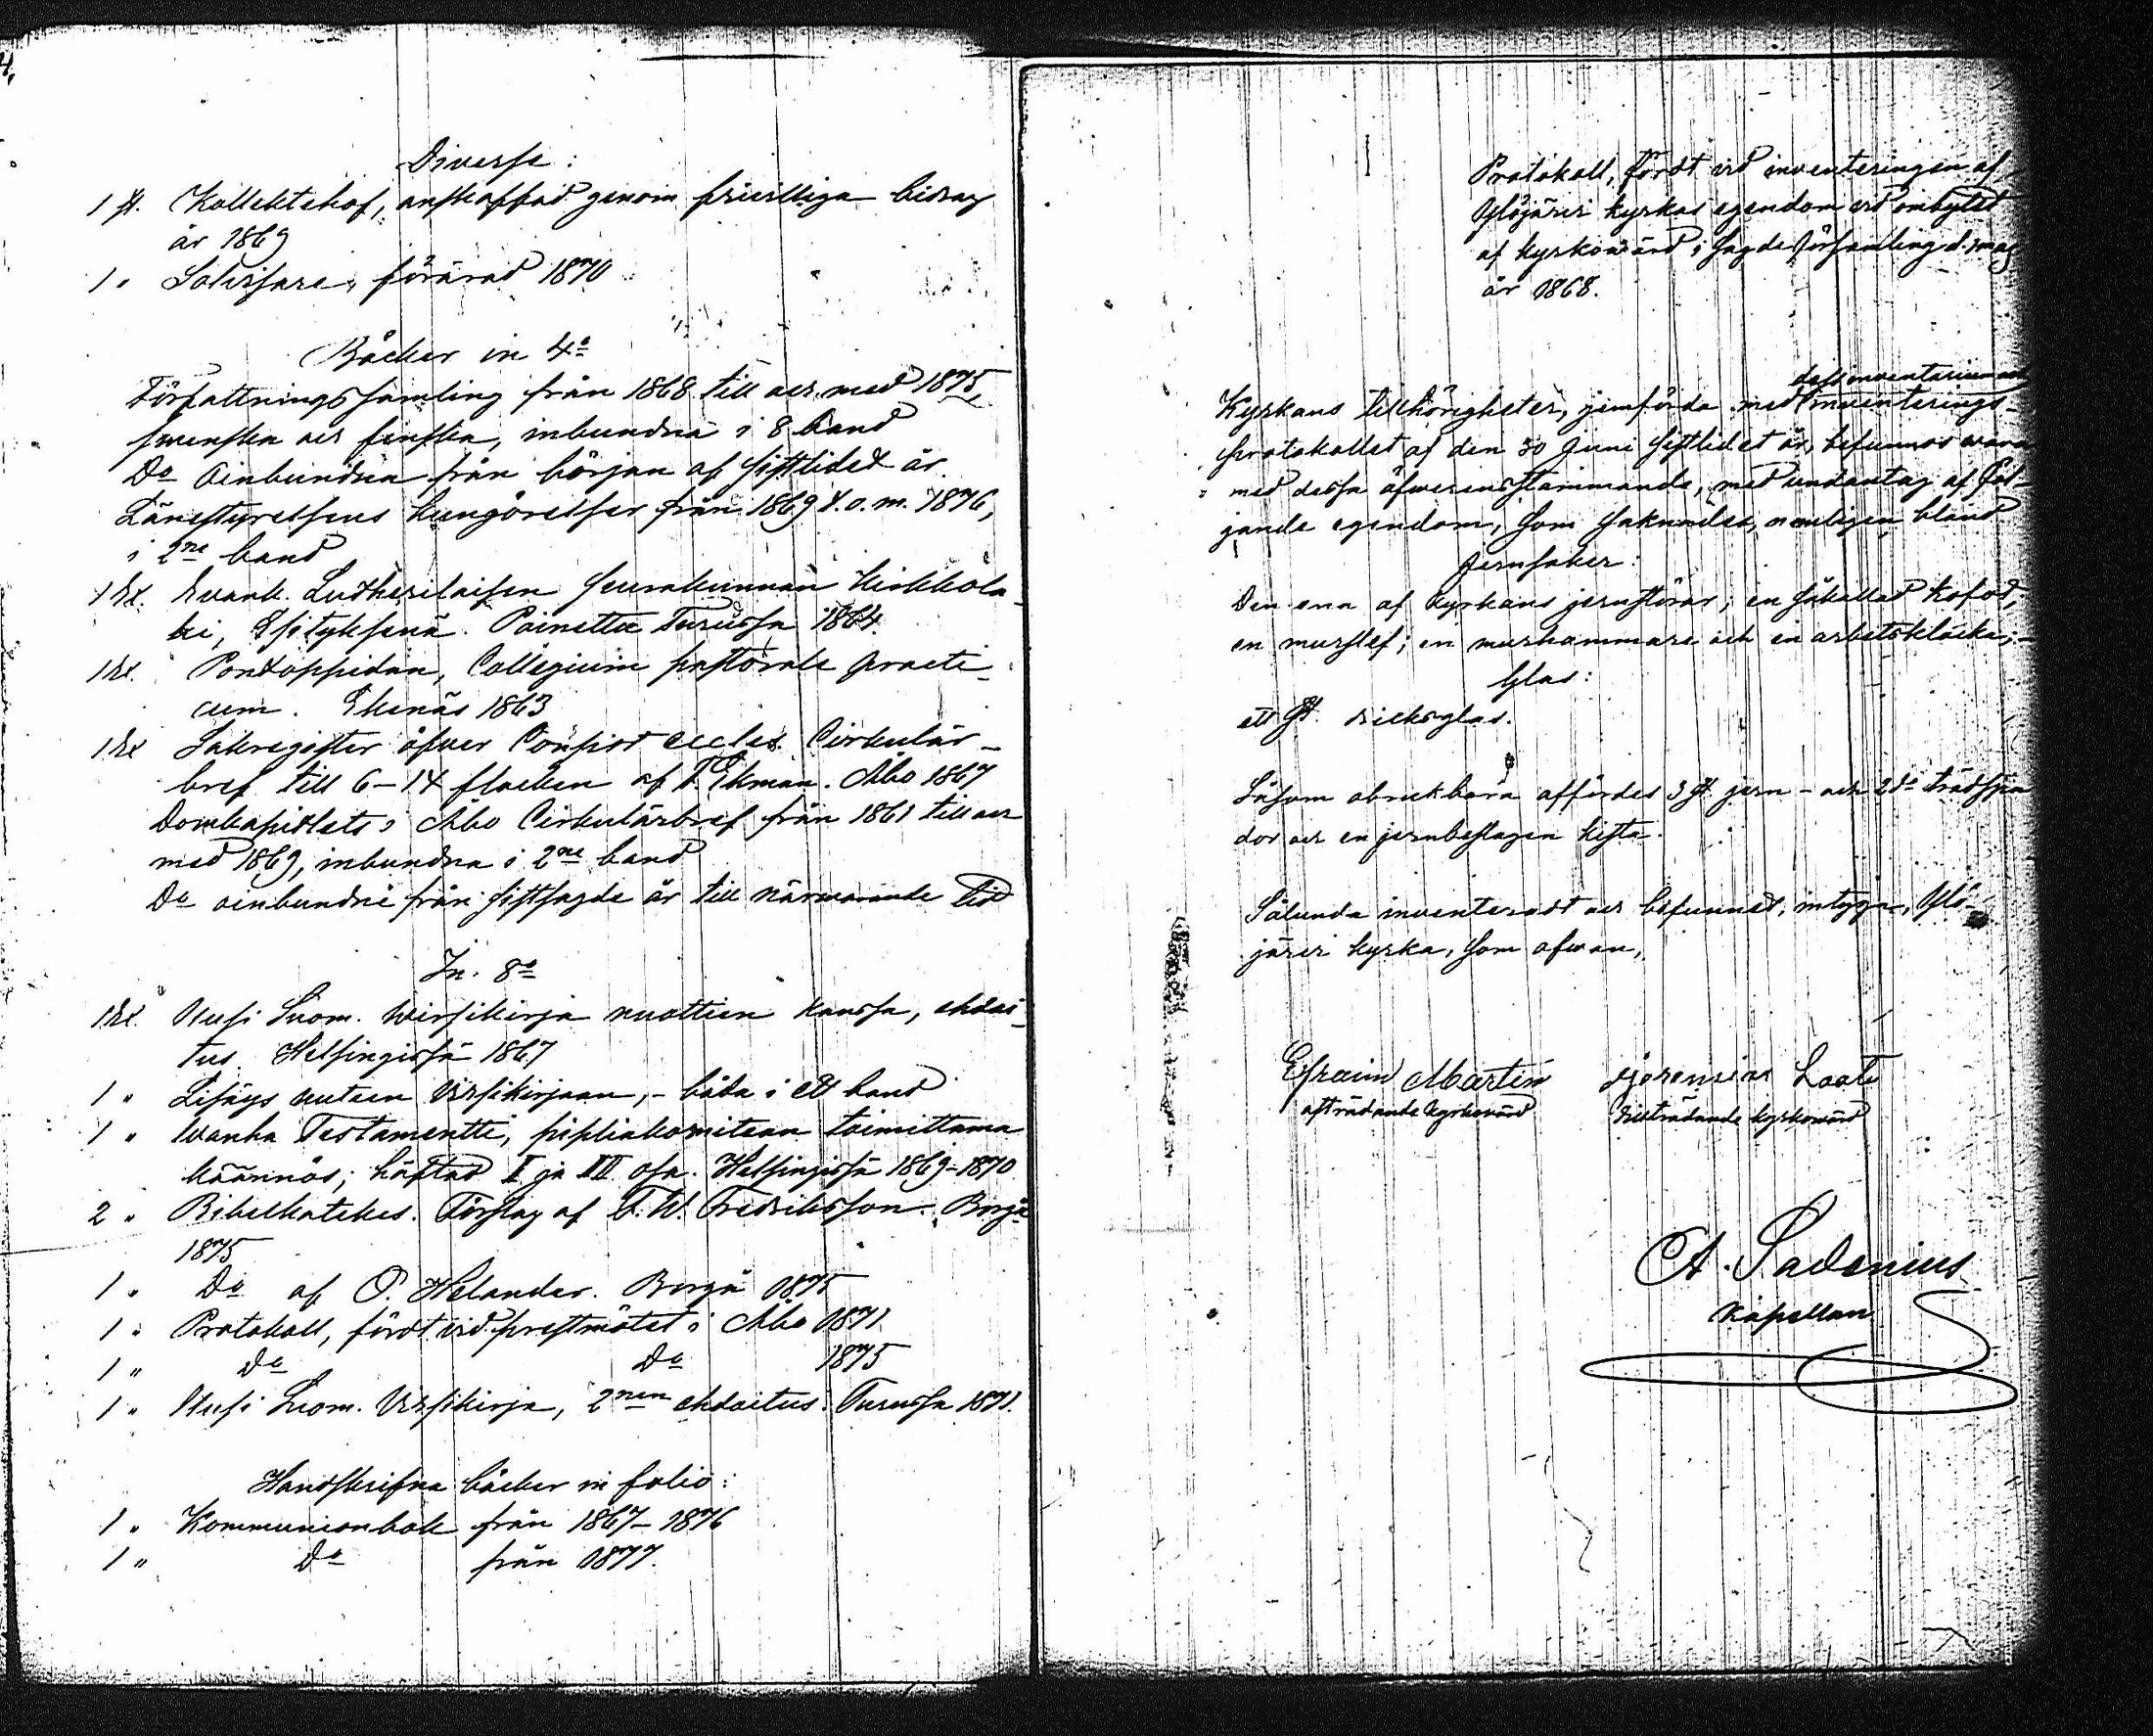 Diverse:
1 st. Kollektshof, anskaffad genom friwilliga bidrag
år 1869
1 " Solvisare, förärad 1870
Böcker in 4o
Författningssamling från 1868 till och med 1875,
swenska och finska, inbundna i 8 band
Do oinbundna från början af sistlidet år
Länestyrelsens kungörelser från 1869 t.o.m. 1876,
i 2ne band
1 Ex. Evank. Lutherilaisen seurakunnan kirkkola-
ki, Esityksenä. Painettu Turussa 1864.
1 Ex. Pontoppidan, Collegium pastorale practi-
cum. Ekenäs 1863
1 Ex Sakregister öfver Consist eccles. Cirkulär-
bref till 6-14 flocken af F. Ekman. Åbo 1867
Domkapitlets i Åbo Cirkulärbref från 1861 till och
med 1869, inbundna i 2ne band
Do oinbundne från sistsagde år till närwarande tid
In 8o
1 Ex. Uusi Suom. Wirsikirja nuottien kanssa, ehdoi-
tus Helsingissä 1867
1 " Lisäys uuteen Virsikirjaan, - båda i ett band
1 " Wanha Testamentti, pipliakomitean toimittama
käännös; häftad I ja III osa. Helsingissä 1869-1870
2 " Bibelkatekes. Förslag af F. W. Fredriksson. Borgå
1875
1 " Do af O. Helander. Borgå 1875
1 " Protokoll, fördt vid prestmötet i Åbo 1871
1 " Do Do 1875
1 " Uusi Suom. Virsikirja, 2nen ehdoitus. Turussa 1871.
Handskrifna böcker in folio:
1 " Kommunionbok från 1867-1876
1 " Do från 1877.
Protokoll, fördt vid inventeringen af
Ylöjärvi kyrkas egendom vid ombytet
af kyrkowärd i sagde församling d. 1 maj
år 1868.
dess inventarium och
Kyrkans tillhörigheter, jemförda med inventerings-
protokollet af den 30 Juni sistlidet år, befunnos wara
med dessa öfwerensstämmande, med undantag af föl-
jande egendom, som saknades, nemligen bland
Jernsaker:
Den ena af kyrkans jernstörar; en såkallad kofod,
en murslef; en murhammare och en arbetsklocka;-
Glas:
ett st. dricksglas.
Såsom obrukbara affördes 3 st. jern- och 2 do trädspa
dor och en jernbeslagen kista.
Sålunda inventeradt och befunnet, intyga, Ylö-
järvi kyrka, som ofwan,
Efraim Martin Loate
afträdande kyrkovärd tillträdande kyrkovärd
A. Sadenius
Kapellan